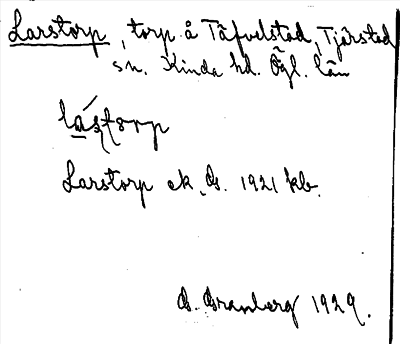 Larstorp, torp å Täfvelstad, Tjärstad
sn. Kinda hd. Ögl. län
lás̱torp
Larstorp ek. G. 1921 kb.
G. Granberg 1929.